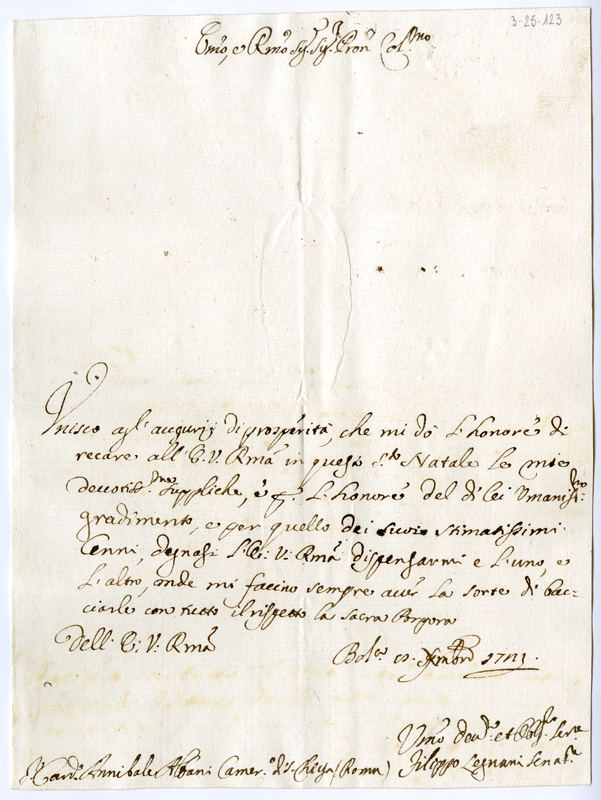 3-25-123
Emo, e Rmo Sig. Sig. Pron Col.mo
Unisco agl' augurij di prosperità, che mi dò l'honore di
recare all' E. V. Rma in questo S.to Natale le mie
devotiss.me suppliche, e p. l'honore del di lei Umaniss.mo
gradimento, e per quello dei suoi stimatissimi
Cenni, degnasi l'E: V: Rma dispensarmi e l'uno, e
l'altro, onde mi faccino sempre aver la sorte di bac=
ciarle con tutto il rispetto la sacra Porpora
Dell' E. V. Rma
Bol.a Xmbre
Umo Dev.o et Obl.o Ser.e
Card. Annibale Albani Camer.o di S. Chiesa (Roma) Filippo Legnani Senat.e